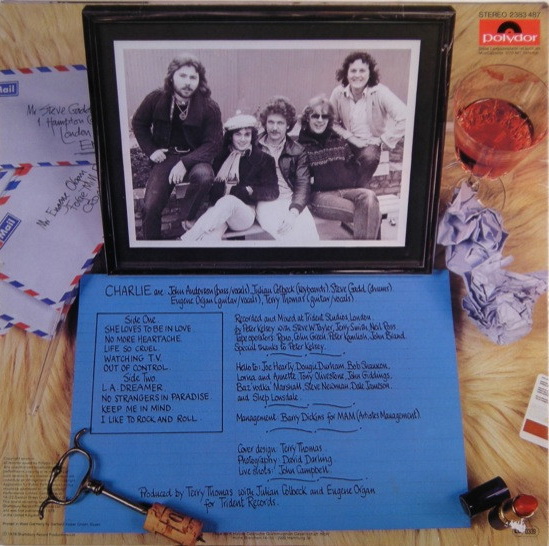 STEREO 2383 487
polydor
Mail
Mr Steve Gadd
1 Hampton
London
Mr Eugene
Mail
CHARLIE are: John Anderson (bass/vocals), Julian Colbeck (keyboards), Steve Gadd (drums)
Eugene Organ (guitar/vocals), Terry Thomas (guitar/vocals)
Side One
SHE LOVES TO BE IN LOVE
NO MORE HEARTACHE
LIFE SO CRUEL
WATCHING T.V.
OUT OF CONTROL
Side Two
L.A. DREAMER
NO STRANGERS IN PARADISE
KEEP ME IN MIND
I LIKE TO ROCK AND ROLL
Recorded and Mixed at Trident Studios London
by Peter Kelsey with Steve W. Tayler, Jerry Smith, Neil Ross
Tape operators Reno, Colin Green, Peter Kamlish, John Brand
Special thanks to Peter Kelsey
Hello to: Joe Hearty, Dougie Durham, Bob Shannon,
Lorna and Annette, Tony Outeridge, John Giddings,
Baz vodka Marshall, Steve Newman, Dale Jameson
and Shep Lonsdale
Management: Barry Dickins for MAM (Artistes Management)
Cover design: Terry Thomas
Photography: David Darling
Live shots: John Campbell
Produced by Terry Thomas with Julian Colbeck and Eugene Organ
for Trident Records.